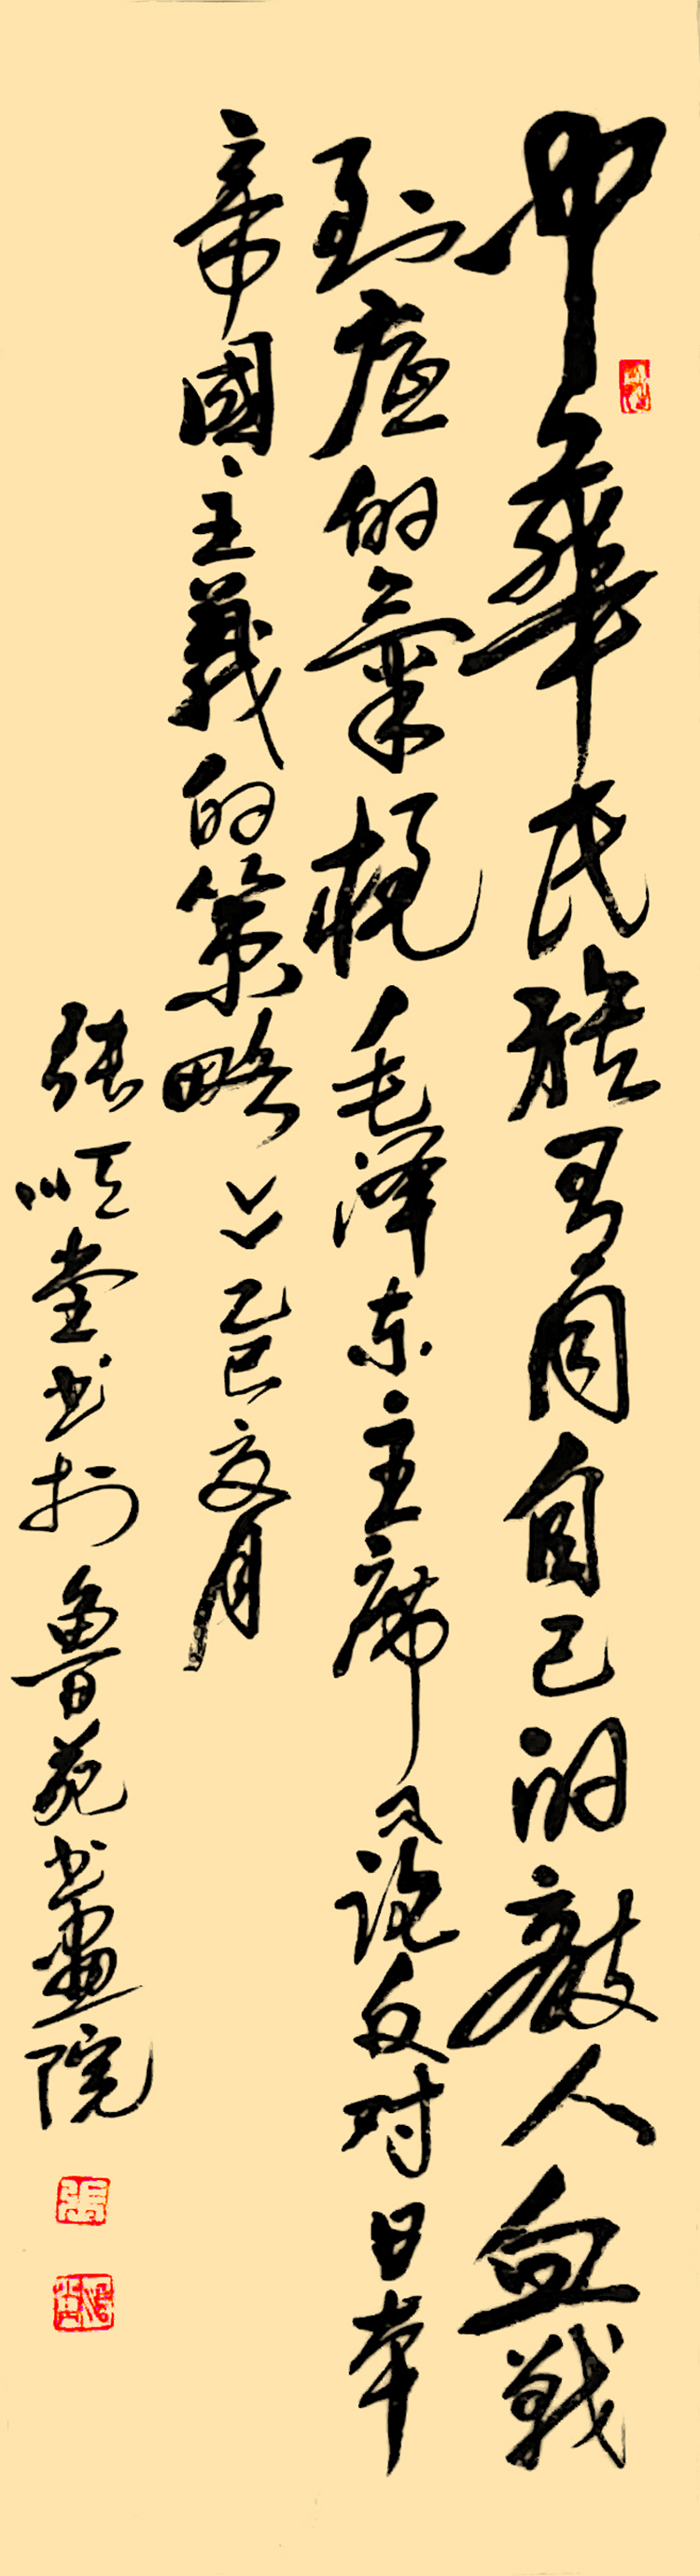 中華民族有同自己的敵人血戰
到底的氣概毛泽东主席《论反对日本
帝國主義的策略》乙巳夏月
张顺堂书於鲁苑书畫院
張